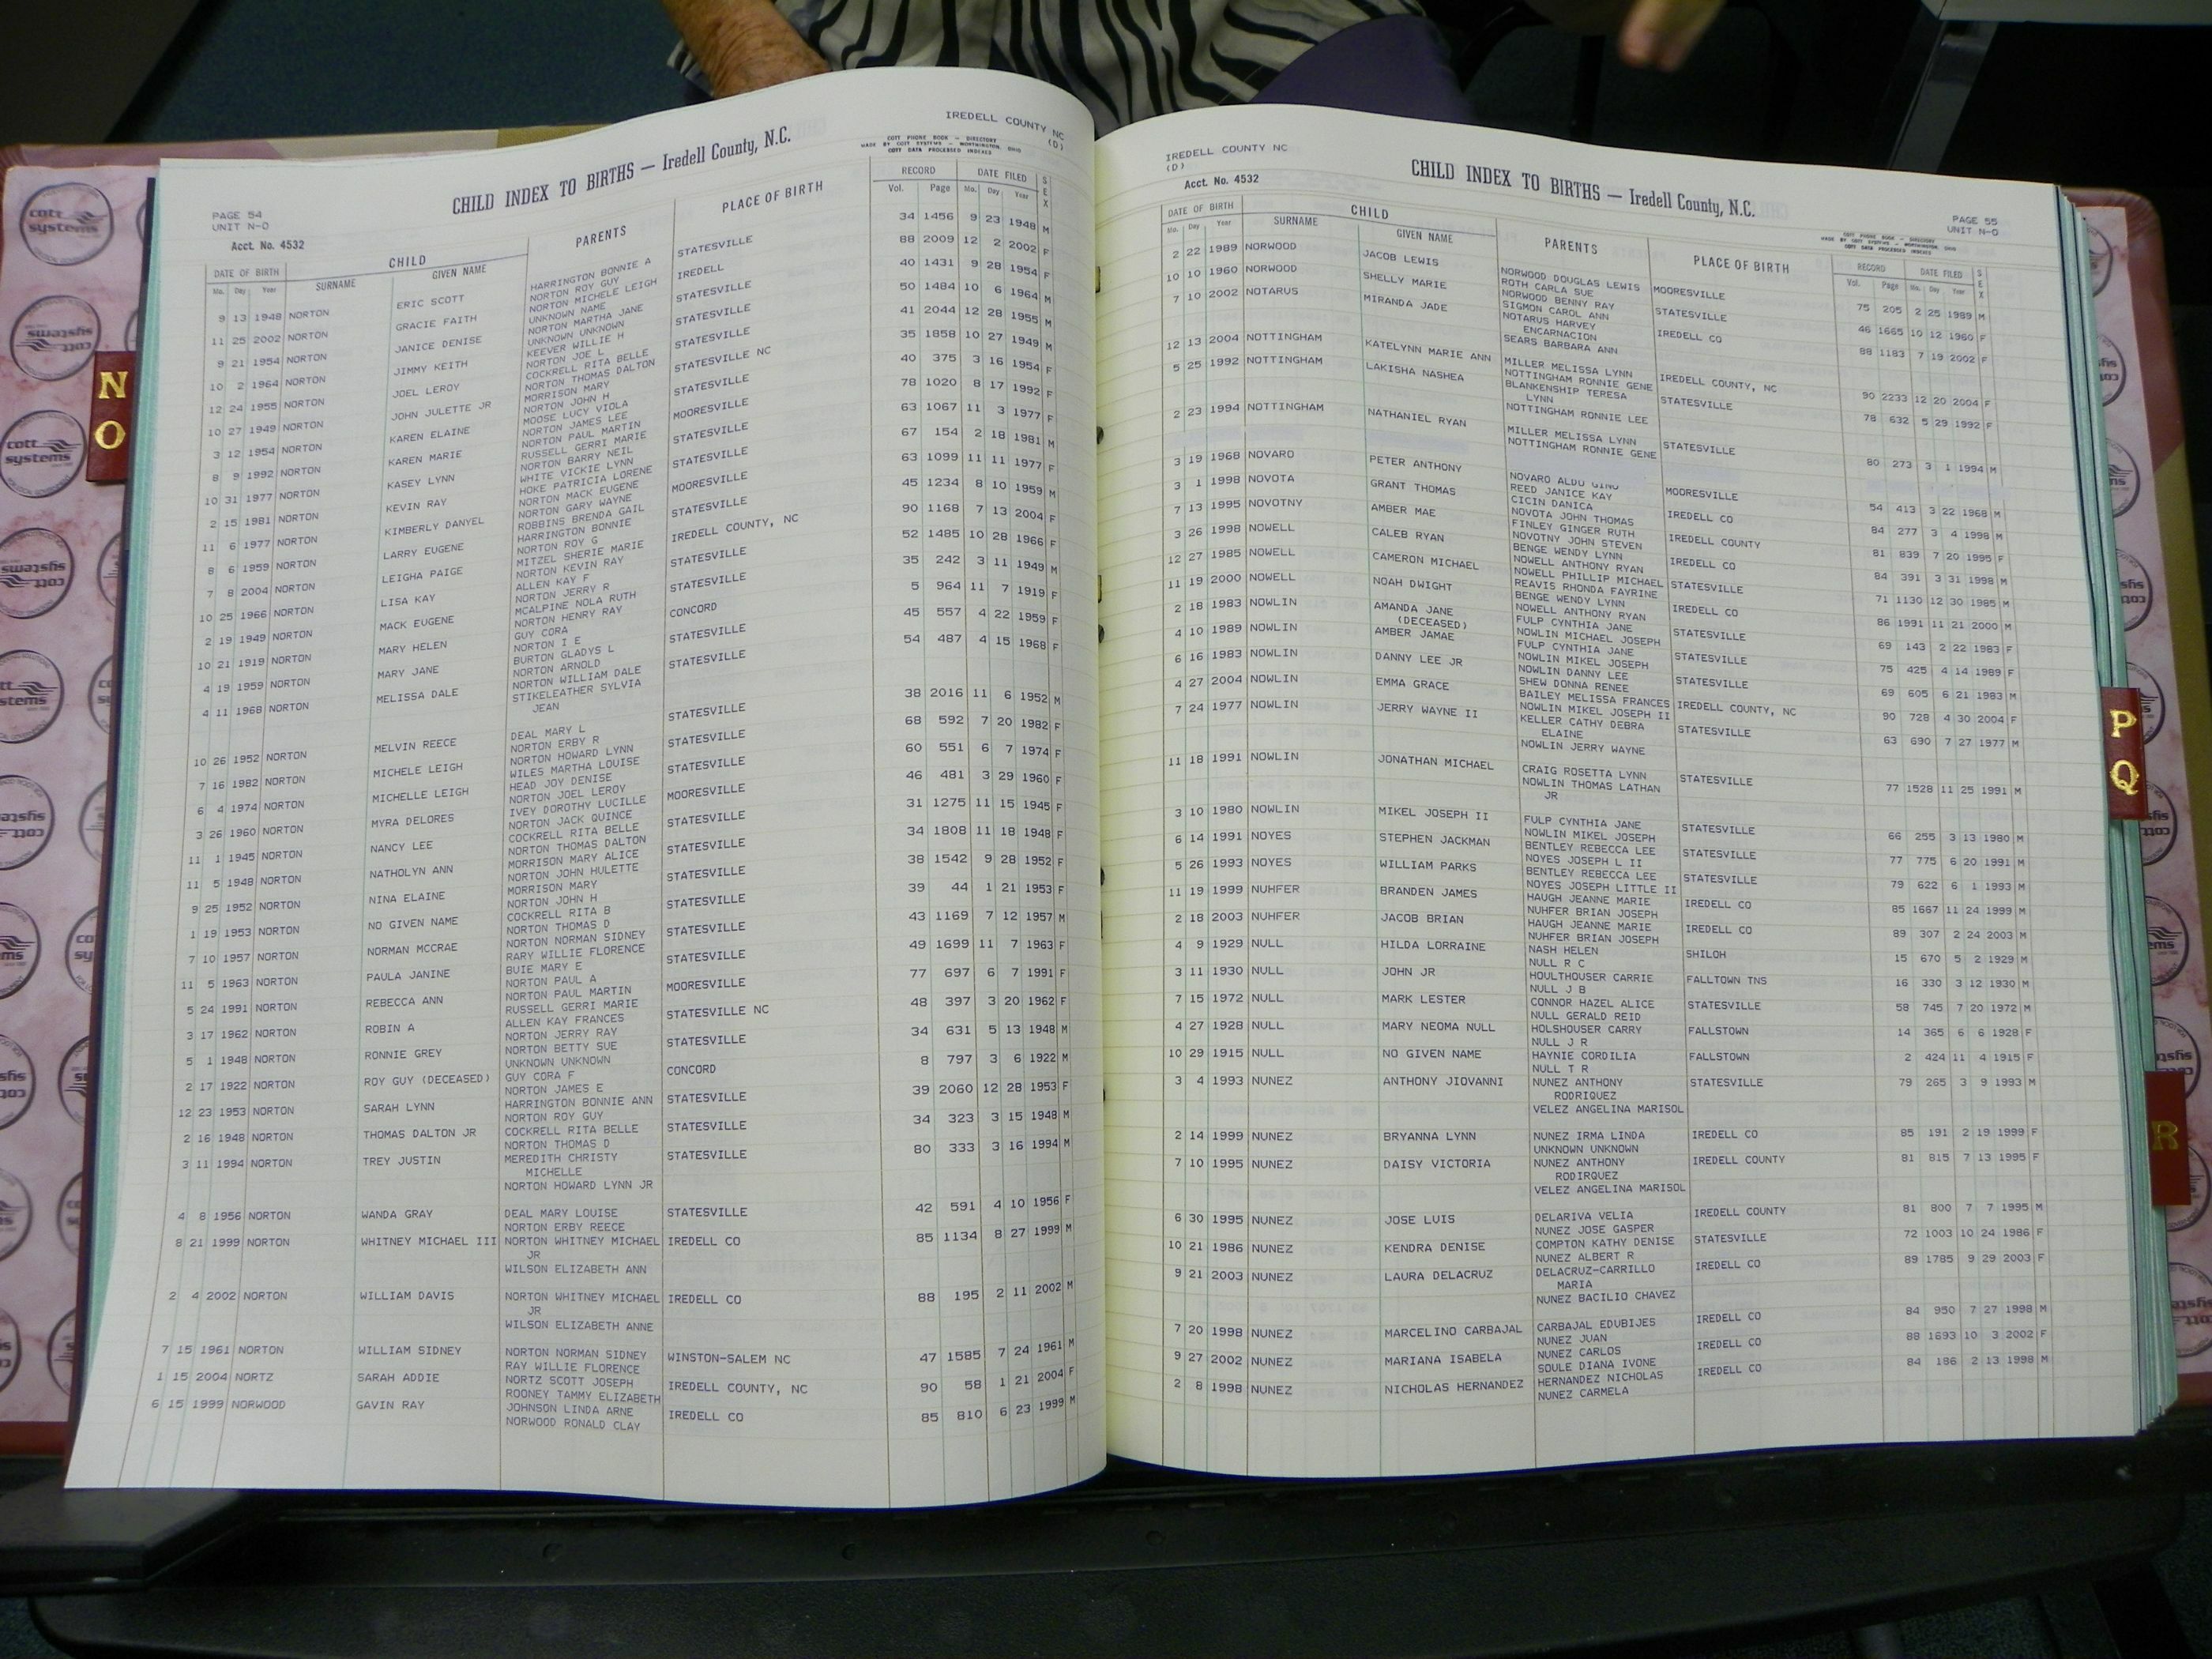 IREDELL COUNTY NC
(D)
COTT PHONE BOOK — DIRECTORY
MADE BY COTT SYSTEMS — WORTHINGTON, OHIO
COTT DATA PROCESSED INDEXES
CHILD INDEX TO BIRTHS — Iredell County, N.C.
PAGE 54
UNIT N-O
Acct. No. 4532
DATE OF BIRTH CHILD PARENTS PLACE OF BIRTH RECORD DATE FILED SEX
Mo. Day Year SURNAME GIVEN NAME Vol. Page Mo. Day Year
9 13 1948 NORTON ERIC SCOTT HARRINGTON BONNIE A STATESVILLE 34 1456 9 23 1948 M
NORTON ROY GUY
11 25 2002 NORTON GRACIE FAITH NORTON MICHELE LEIGH IREDELL 88 2009 12 2 2002 F
UNKNOWN NAME
9 21 1954 NORTON JANICE DENISE NORTON MARTHA JANE STATESVILLE 40 1431 9 28 1954 F
UNKNOWN UNKNOWN
10 2 1964 NORTON JIMMY KEITH KEEVER WILLIE H STATESVILLE 50 1484 10 6 1964 M
NORTON JOE L
12 24 1955 NORTON JOEL LEROY COCKRELL RITA BELLE STATESVILLE 41 2044 12 28 1955 M
NORTON THOMAS DALTON
10 27 1949 NORTON JOHN JULETTE JR MORRISON MARY STATESVILLE NC 35 1858 10 27 1949 M
NORTON JOHN H
3 12 1954 NORTON KAREN ELAINE MOOSE LUCY VIOLA STATESVILLE 40 375 3 16 1954 F
NORTON JAMES LEE
8 9 1992 NORTON KAREN MARIE NORTON PAUL MARTIN MOORESVILLE 78 1020 8 17 1992 F
RUSSELL GERRI MARIE
10 31 1977 NORTON KASEY LYNN NORTON BARRY NEIL STATESVILLE 63 1067 11 3 1977 F
WHITE VICKIE LYNN
2 15 1981 NORTON KEVIN RAY HOKE PATRICIA LORENE STATESVILLE 67 154 2 18 1981 M
NORTON MACK EUGENE
11 6 1977 NORTON KIMBERLY DANYEL NORTON GARY WAYNE MOORESVILLE 63 1099 11 11 1977 F
ROBBINS BRENDA GAIL
8 6 1959 NORTON LARRY EUGENE HARRINGTON BONNIE STATESVILLE 45 1234 8 10 1959 M
NORTON ROY G
7 8 2004 NORTON LEIGHA PAIGE MITZEL SHERIE MARIE IREDELL COUNTY, NC 90 1168 7 13 2004 F
NORTON KEVIN RAY
10 25 1966 NORTON LISA KAY ALLEN KAY F STATESVILLE 52 1485 10 28 1966 F
NORTON JERRY R
2 19 1949 NORTON MACK EUGENE MCALPINE NOLA RUTH STATESVILLE 35 242 3 11 1949 M
NORTON HENRY RAY
10 21 1919 NORTON MARY HELEN GUY CORA CONCORD 5 964 11 7 1919 F
NORTON I E
4 19 1959 NORTON MARY JANE BURTON GLADYS L STATESVILLE 45 557 4 22 1959 F
NORTON ARNOLD
4 11 1968 NORTON MELISSA DALE NORTON WILLIAM DALE STATESVILLE 54 487 4 15 1968 F
STIKELEATHER SYLVIA
JEAN
10 26 1952 NORTON MELVIN REECE DEAL MARY L STATESVILLE 38 2016 11 6 1952 M
NORTON ERBY R
7 16 1982 NORTON MICHELE LEIGH NORTON HOWARD LYNN STATESVILLE 68 592 7 20 1982 F
WILES MARTHA LOUISE
6 4 1974 NORTON MICHELLE LEIGH HEAD JOY DENISE STATESVILLE 60 551 6 7 1974 F
NORTON JOEL LEROY
3 26 1960 NORTON MYRA DELORES IVEY DOROTHY LUCILLE MOORESVILLE 46 481 3 29 1960 F
NORTON JACK QUINCE
11 1 1945 NORTON NANCY LEE COCKRELL RITA BELLE STATESVILLE 31 1275 11 15 1945 F
NORTON THOMAS DALTON
11 5 1948 NORTON NATHOLYN ANN MORRISON MARY ALICE STATESVILLE 34 1808 11 18 1948 F
NORTON JOHN HULETTE
9 25 1952 NORTON NINA ELAINE MORRISON MARY STATESVILLE 38 1542 9 28 1952 F
NORTON JOHN H
1 19 1953 NORTON NO GIVEN NAME COCKRELL RITA B STATESVILLE 39 44 1 21 1953 F
NORTON THOMAS D
7 10 1957 NORTON NORMAN MCCRAE NORTON NORMAN SIDNEY STATESVILLE 43 1169 7 12 1957 M
RARY WILLIE FLORENCE
11 5 1963 NORTON PAULA JANINE BUIE MARY E STATESVILLE 49 1699 11 7 1963 F
NORTON PAUL A
5 24 1991 NORTON REBECCA ANN NORTON PAUL MARTIN MOORESVILLE 77 697 6 7 1991 F
RUSSELL GERRI MARIE
3 17 1962 NORTON ROBIN A ALLEN KAY FRANCES STATESVILLE NC 48 397 3 20 1962 F
NORTON JERRY RAY
5 1 1948 NORTON RONNIE GREY NORTON BETTY SUE STATESVILLE 34 631 5 13 1948 M
UNKNOWN UNKNOWN
2 17 1922 NORTON ROY GUY (DECEASED) GUY CORA F CONCORD 8 797 3 6 1922 M
NORTON JAMES E
12 23 1953 NORTON SARAH LYNN HARRINGTON BONNIE ANN STATESVILLE 39 2060 12 28 1953 F
NORTON ROY GUY
2 16 1948 NORTON THOMAS DALTON JR COCKRELL RITA BELLE STATESVILLE 34 323 3 15 1948 M
NORTON THOMAS D
3 11 1994 NORTON TREY JUSTIN MEREDITH CHRISTY STATESVILLE 80 333 3 16 1994 M
MICHELLE
NORTON HOWARD LYNN JR
4 8 1956 NORTON WANDA GRAY DEAL MARY LOUISE STATESVILLE 42 591 4 10 1956 F
NORTON ERBY REECE
8 21 1999 NORTON WHITNEY MICHAEL III NORTON WHITNEY MICHAEL IREDELL CO 85 1134 8 27 1999 M
JR
WILSON ELIZABETH ANN
2 4 2002 NORTON WILLIAM DAVIS NORTON WHITNEY MICHAEL IREDELL CO 88 195 2 11 2002 M
JR
WILSON ELIZABETH ANNE
7 15 1961 NORTON WILLIAM SIDNEY NORTON NORMAN SIDNEY WINSTON-SALEM NC 47 1585 7 24 1961 M
RAY WILLIE FLORENCE
1 15 2004 NORTZ SARAH ADDIE NORTZ SCOTT JOSEPH IREDELL COUNTY, NC 90 58 1 21 2004 F
ROONEY TAMMY ELIZABETH
6 15 1999 NORWOOD GAVIN RAY JOHNSON LINDA ARNE IREDELL CO 85 810 6 23 1999 M
NORWOOD RONALD CLAY
IREDELL COUNTY NC
(D)
Acct. No. 4532
CHILD INDEX TO BIRTHS — Iredell County, N.C.
PAGE 55
UNIT N-O
COTT PHONE BOOK — DIRECTORY
MADE BY COTT SYSTEMS — WORTHINGTON, OHIO
COTT DATA PROCESSED INDEXES
DATE OF BIRTH CHILD PARENTS PLACE OF BIRTH RECORD DATE FILED SEX
Mo. Day Year SURNAME GIVEN NAME Vol. Page Mo. Day Year
2 22 1989 NORWOOD JACOB LEWIS NORWOOD DOUGLAS LEWIS MOORESVILLE 75 205 2 25 1989 M
ROTH CARLA SUE
10 10 1960 NORWOOD SHELLY MARIE NORWOOD BENNY RAY STATESVILLE 46 1665 10 12 1960 F
SIGMON CAROL ANN
7 10 2002 NOTARUS MIRANDA JADE NOTARUS HARVEY IREDELL CO 88 1183 7 19 2002 F
ENCARNACION
SEARS BARBARA ANN
12 13 2004 NOTTINGHAM KATELYNN MARIE ANN MILLER MELISSA LYNN IREDELL COUNTY, NC 90 2233 12 20 2004 F
NOTTINGHAM RONNIE GENE
5 25 1992 NOTTINGHAM LAKISHA NASHEA BLANKENSHIP TERESA STATESVILLE 78 632 5 29 1992 F
LYNN
NOTTINGHAM RONNIE LEE
2 23 1994 NOTTINGHAM NATHANIEL RYAN MILLER MELISSA LYNN STATESVILLE 80 273 3 1 1994 M
NOTTINGHAM RONNIE GENE
3 19 1968 NOVARO PETER ANTHONY NOVARO ALDO GINO MOORESVILLE 54 413 3 22 1968 M
REED JANICE KAY
3 1 1998 NOVOTA GRANT THOMAS CICIN DANICA IREDELL CO 84 277 3 4 1998 M
NOVOTA JOHN THOMAS
7 13 1995 NOVOTNY AMBER MAE FINLEY GINGER RUTH IREDELL COUNTY 81 839 7 20 1995 F
NOVOTNY JOHN STEVEN
3 26 1998 NOWELL CALEB RYAN BENGE WENDY LYNN IREDELL CO 84 391 3 31 1998 M
NOWELL ANTHONY RYAN
12 27 1985 NOWELL CAMERON MICHAEL NOWELL PHILLIP MICHAEL STATESVILLE 71 1130 12 30 1985 M
REAVIS RHONDA FAYRINE
11 19 2000 NOWELL NOAH DWIGHT BENGE WENDY LYNN IREDELL CO 86 1991 11 21 2000 M
NOWELL ANTHONY RYAN
2 18 1983 NOWLIN AMANDA JANE FULP CYNTHIA JANE STATESVILLE 69 143 2 22 1983 F
(DECEASED) NOWLIN MICHAEL JOSEPH
4 10 1989 NOWLIN AMBER JAMAE FULP CYNTHIA JANE STATESVILLE 75 425 4 14 1989 F
NOWLIN MIKEL JOSEPH
6 16 1983 NOWLIN DANNY LEE JR NOWLIN DANNY LEE STATESVILLE 69 605 6 21 1983 M
SHEW DONNA RENEE
4 27 2004 NOWLIN EMMA GRACE BAILEY MELISSA FRANCES IREDELL COUNTY, NC 90 728 4 30 2004 F
NOWLIN MIKEL JOSEPH II
7 24 1977 NOWLIN JERRY WAYNE II KELLER CATHY DEBRA STATESVILLE 63 690 7 27 1977 M
ELAINE
NOWLIN JERRY WAYNE
11 18 1991 NOWLIN JONATHAN MICHAEL CRAIG ROSETTA LYNN STATESVILLE 77 1528 11 25 1991 M
NOWLIN THOMAS LATHAN
JR
3 10 1980 NOWLIN MIKEL JOSEPH II FULP CYNTHIA JANE STATESVILLE 66 255 3 13 1980 M
NOWLIN MIKEL JOSEPH
6 14 1991 NOYES STEPHEN JACKMAN BENTLEY REBECCA LEE STATESVILLE 77 775 6 20 1991 M
NOYES JOSEPH L II
5 26 1993 NOYES WILLIAM PARKS BENTLEY REBECCA LEE STATESVILLE 79 622 6 1 1993 M
NOYES JOSEPH LITTLE II
11 19 1999 NUHFER BRANDEN JAMES HAUGH JEANNE MARIE IREDELL CO 85 1667 11 24 1999 M
NUHFER BRIAN JOSEPH
2 18 2003 NUHFER JACOB BRIAN HAUGH JEANNE MARIE IREDELL CO 89 307 2 24 2003 M
NUHFER BRIAN JOSEPH
4 9 1929 NULL HILDA LORRAINE NASH HELEN SHILOH 15 670 5 2 1929 M
NULL R C
3 11 1930 NULL JOHN JR HOULTHOUSER CARRIE FALLTOWN TNS 16 330 3 12 1930 M
NULL J B
7 15 1972 NULL MARK LESTER CONNOR HAZEL ALICE STATESVILLE 58 745 7 20 1972 M
NULL GERALD REID
4 27 1928 NULL MARY NEOMA NULL HOLSHOUSER CARRY FALLSTOWN 14 365 6 6 1928 F
NULL J R
10 29 1915 NULL NO GIVEN NAME HAYNIE CORDILIA FALLSTOWN 2 424 11 4 1915 F
NULL T R
3 4 1993 NUNEZ ANTHONY JIOVANNI NUNEZ ANTHONY STATESVILLE 79 265 3 9 1993 M
RODRIQUEZ
VELEZ ANGELINA MARISOL
2 14 1999 NUNEZ BRYANNA LYNN NUNEZ IRMA LINDA IREDELL CO 85 191 2 19 1999 F
UNKNOWN UNKNOWN
7 10 1995 NUNEZ DAISY VICTORIA NUNEZ ANTHONY IREDELL COUNTY 81 815 7 13 1995 F
RODIRQUEZ
VELEZ ANGELINA MARISOL
6 30 1995 NUNEZ JOSE LUIS DELARIVA VELIA IREDELL COUNTY 81 800 7 7 1995 M
NUNEZ JOSE GASPER
10 21 1986 NUNEZ KENDRA DENISE COMPTON KATHY DENISE STATESVILLE 72 1003 10 24 1986 F
NUNEZ ALBERT R
9 21 2003 NUNEZ LAURA DELACRUZ DELACRUZ-CARRILLO IREDELL CO 89 1785 9 29 2003 F
MARIA
NUNEZ BACILIO CHAVEZ
7 20 1998 NUNEZ MARCELINO CARBAJAL CARBAJAL EDUBIJES IREDELL CO 84 950 7 27 1998 M
NUNEZ JUAN
9 27 2002 NUNEZ MARIANA ISABELA NUNEZ CARLOS IREDELL CO 88 1693 10 3 2002 F
SOULE DIANA IVONE
2 8 1998 NUNEZ NICHOLAS HERNANDEZ HERNANDEZ NICHOLAS IREDELL CO 84 186 2 13 1998 M
NUNEZ CARMELA
N
O
P
Q
R
cott
systems